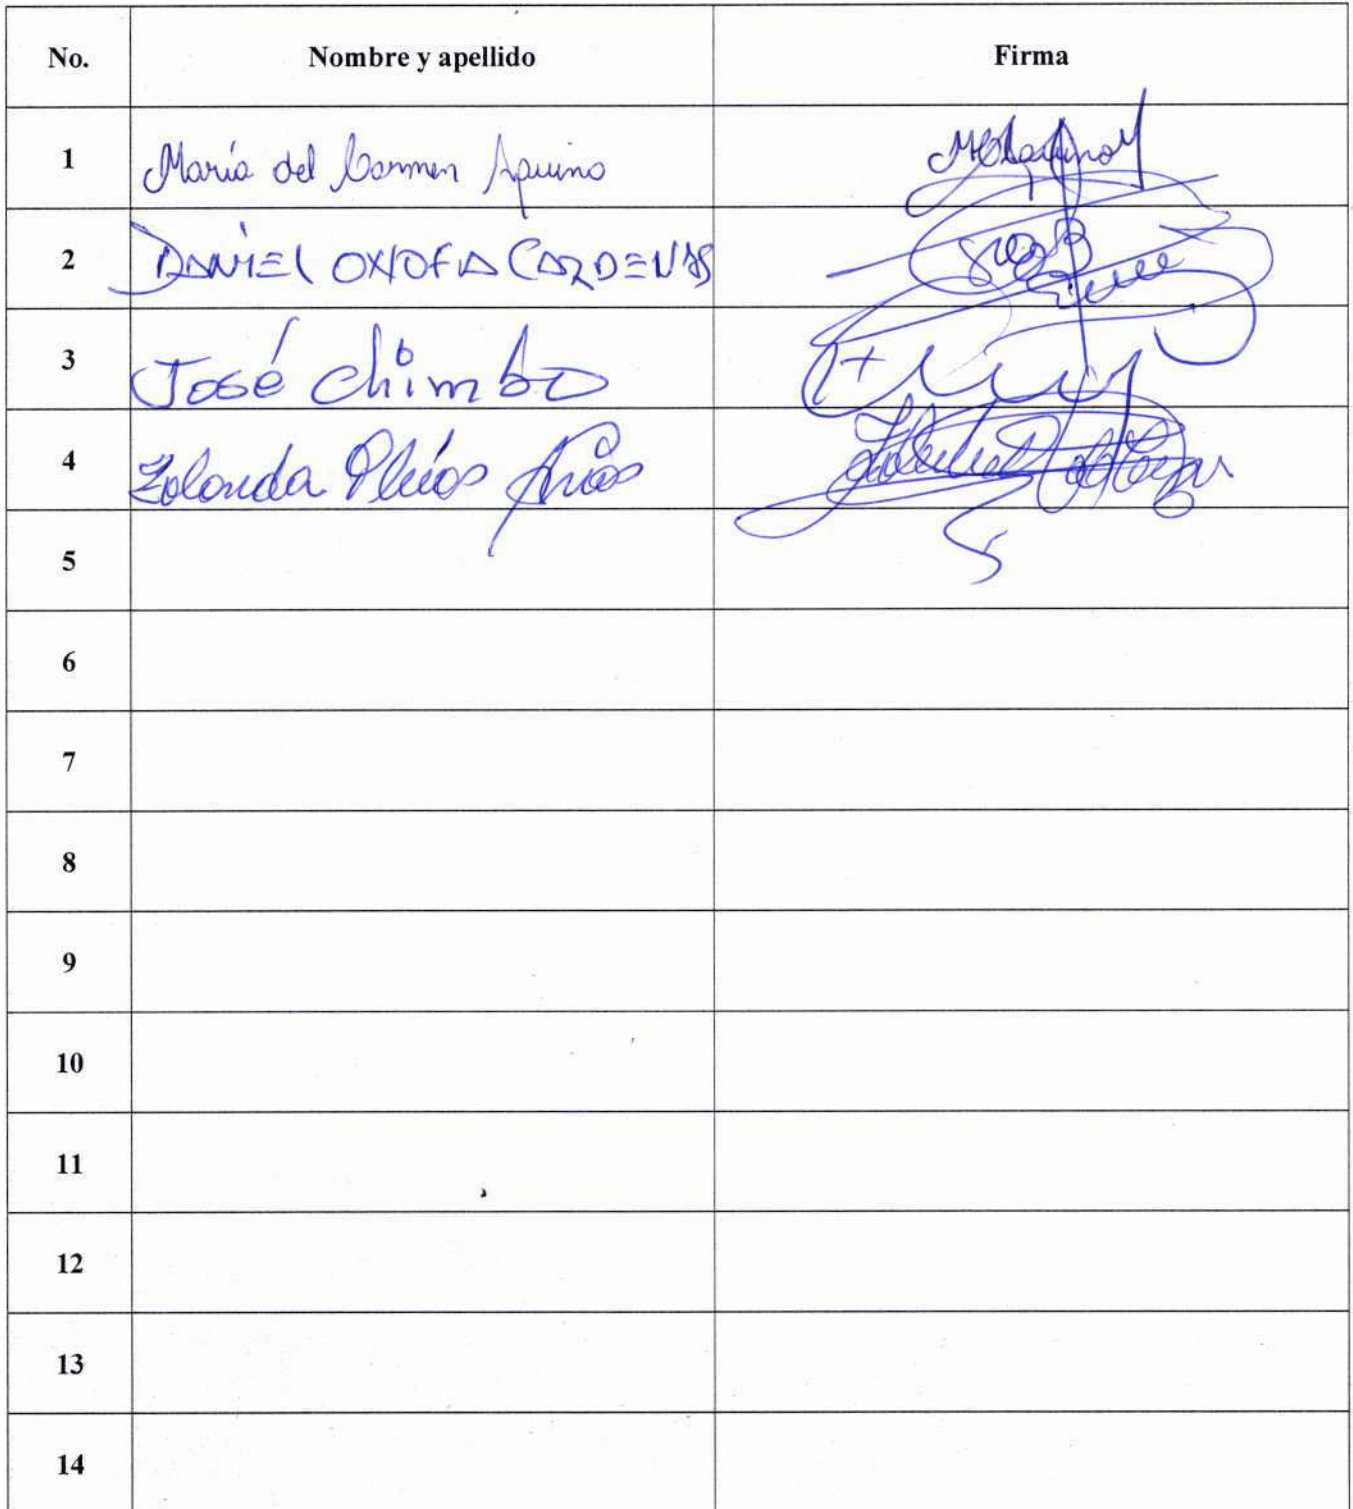 No. Nombre y apellido Firma
1 María del Carmen Aquino
2 DANIEL OXOFIA CARDENAS
3 José Chimbo
4 Yolonda
5
6
7
8
9
10
11
12
13
14